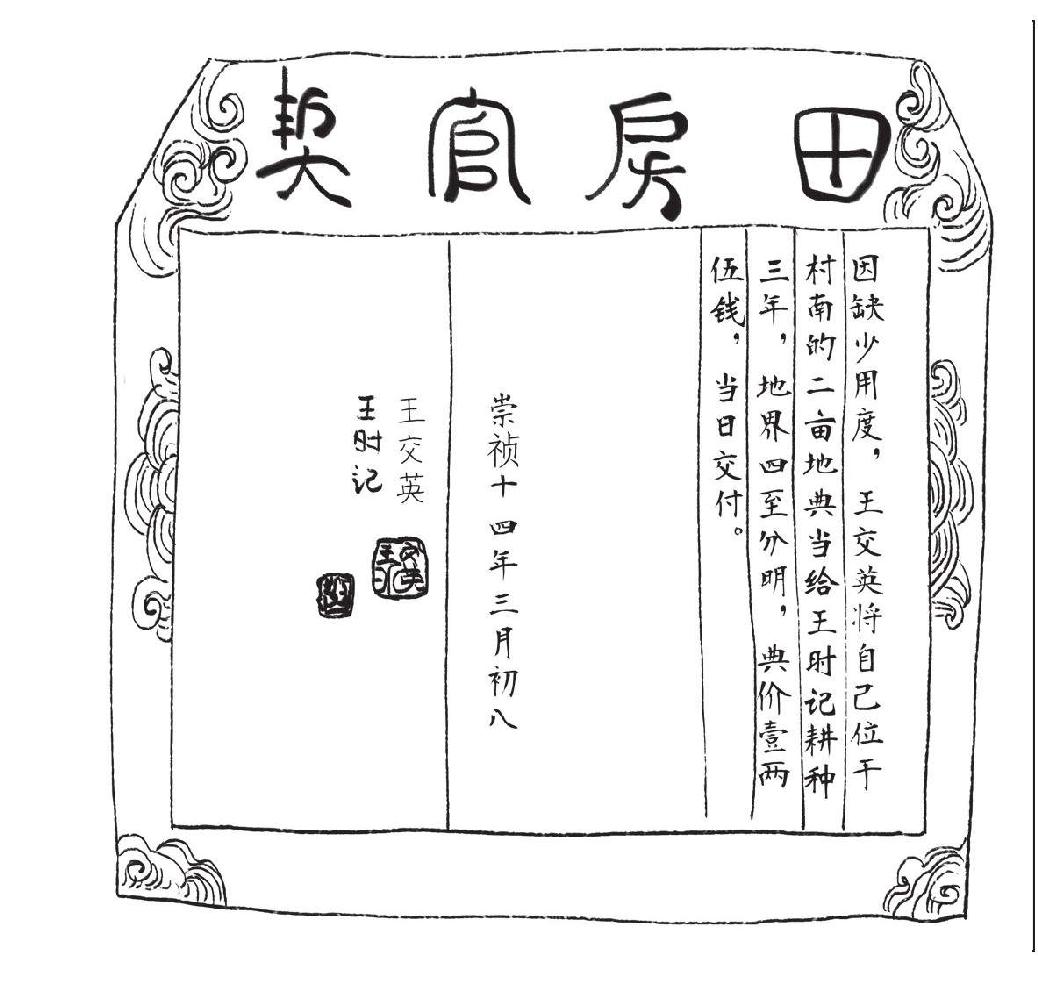 田房官契
因缺少用度，王交英将自己位于
村南的二亩地典当给王时记耕种
三年，地界四至分明，典价壹两
伍钱，当日交付。
崇祯十四年三月初八
王交英
王时记